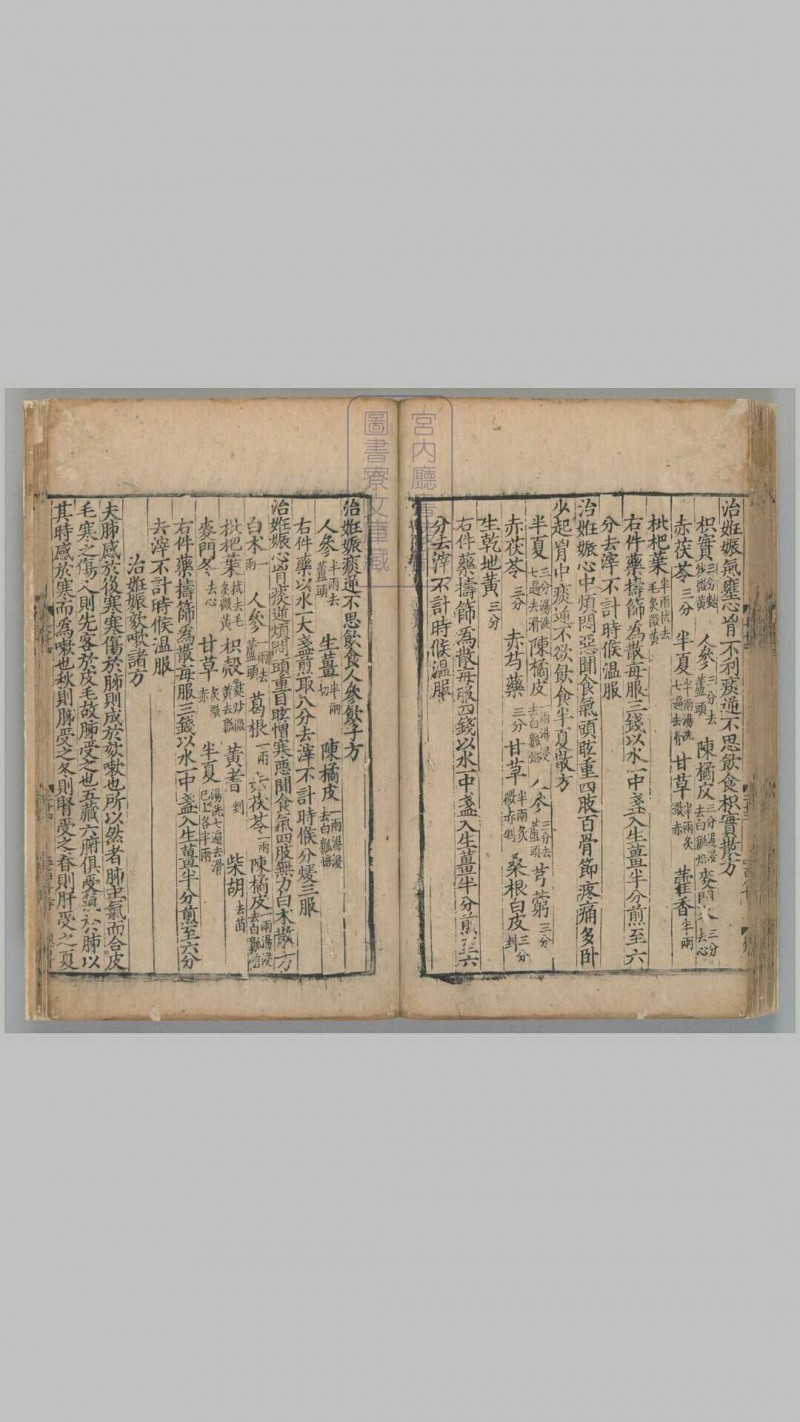 治妊娠氣壅心胷不利痰逆不思飲食枳實散方
枳實三分麩炒微黃 人參三分去蘆頭 陳橘皮三分湯浸去白瓤焙 麥門冬三分去心
赤茯苓三分 半夏半兩湯洗七遍去滑 甘草半兩炙微赤 藿香半兩
枇杷葉半兩拭去毛炙微黃
右件藥擣篩為散每服三錢以水一中盞入生薑半分煎至六
分去滓不計時候溫服
治妊娠心中煩悶惡聞食氣頭眩重四肢百骨節疼痛多卧
少起胷中痰逆不欲飲食半夏散方
半夏三分湯洗七遍去滑 陳橘皮一兩湯浸去白瓤焙 人參三分去蘆頭 芎藭三分
赤茯苓三分 赤芍藥三分 甘草半兩炙微赤剉 桑根白皮三分剉
生乾地黃三分
右件藥擣篩為散每服四錢以水一中盞入生薑半分煎至六
分去滓不計時候溫服
治妊娠痰逆不思飲食人參飲子方
人參半兩去蘆頭 生薑半兩切 陳橘皮一兩湯浸去白瓤焙
右件藥以水一大盞煎取八分去滓不計時候分煖三服
治妊娠心胷痰逆煩悶頭重目眩憎寒惡聞食氣四肢無力白术散方
白术一兩 人參一兩去蘆頭 葛根一兩 茯苓一兩 陳橘皮一兩湯浸去白瓤焙
枇杷葉拭去毛炙微黃 枳殼麩炒微黃去瓤 黃耆剉 柴胡去苗
麥門冬去心 甘草炙微赤 半夏湯洗七遍去滑已上各半兩
右件藥擣篩為散每服三錢以水一中盞入生薑半分煎至六分
去滓不計時候溫服
治妊娠欬嗽諸方
夫肺感於後寒寒傷於肺則成於欬嗽也所以然者肺主氣而合皮
毛寒之傷人則先客於皮毛故肺受之也五藏六腑俱受氣於肺以
其時感於寒而為嗽也秋則肺受之冬則腎受之春則肝受之夏
宮內廳
圖書寮文庫藏